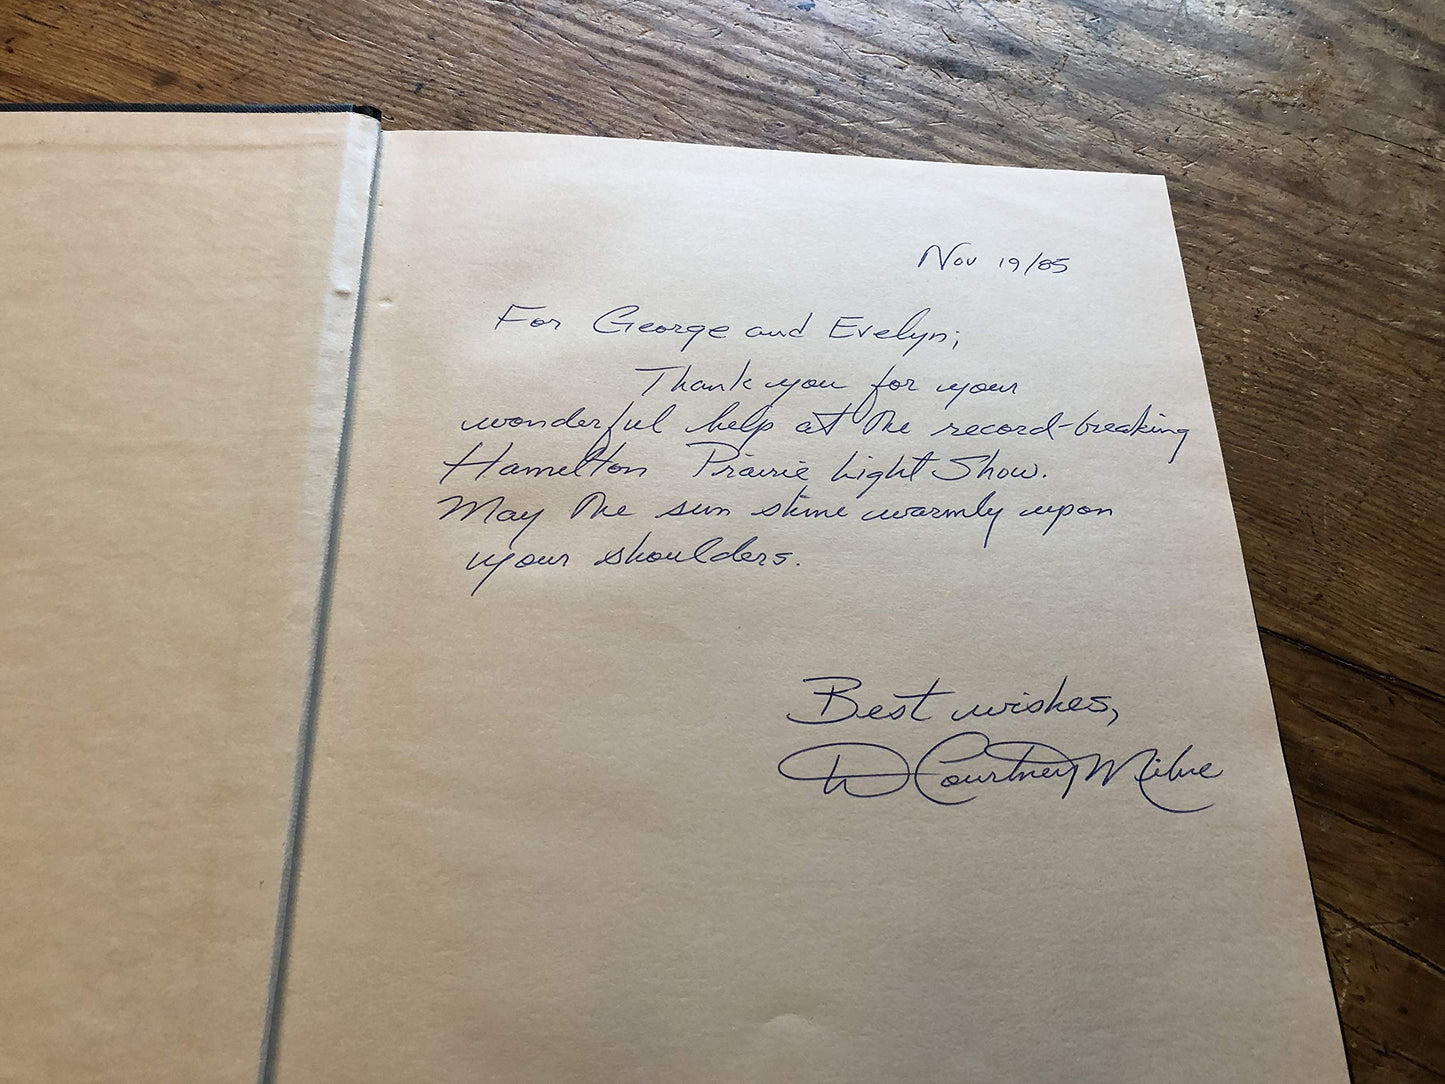 Nov 19/85
For George and Evelyn;
Thank you for your
wonderful help at the record-breaking
Hamelton Prairie Light Show.
May the sun shine warmly upon
your shoulders.
Best wishes,
D Courtney Milne